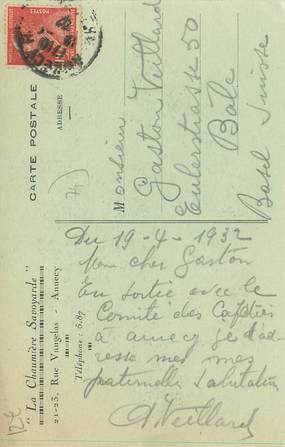 CARTE POSTALE
ADRESSE
Monsieur
Gaston Veillard
Eulerstrasse 50
Bâle
Basel Suisse
74)
"La Chaumière Savoyarde"
21-23, Rue Vaugelas - Annecy
Téléphone : 5.87
Du 19-4-1932
Mon cher Gaston
En sortie avec le
Comité des Cafetiers
à annecy je t'ad-
resse mes mes
paternelles salutation
Veillard
12€